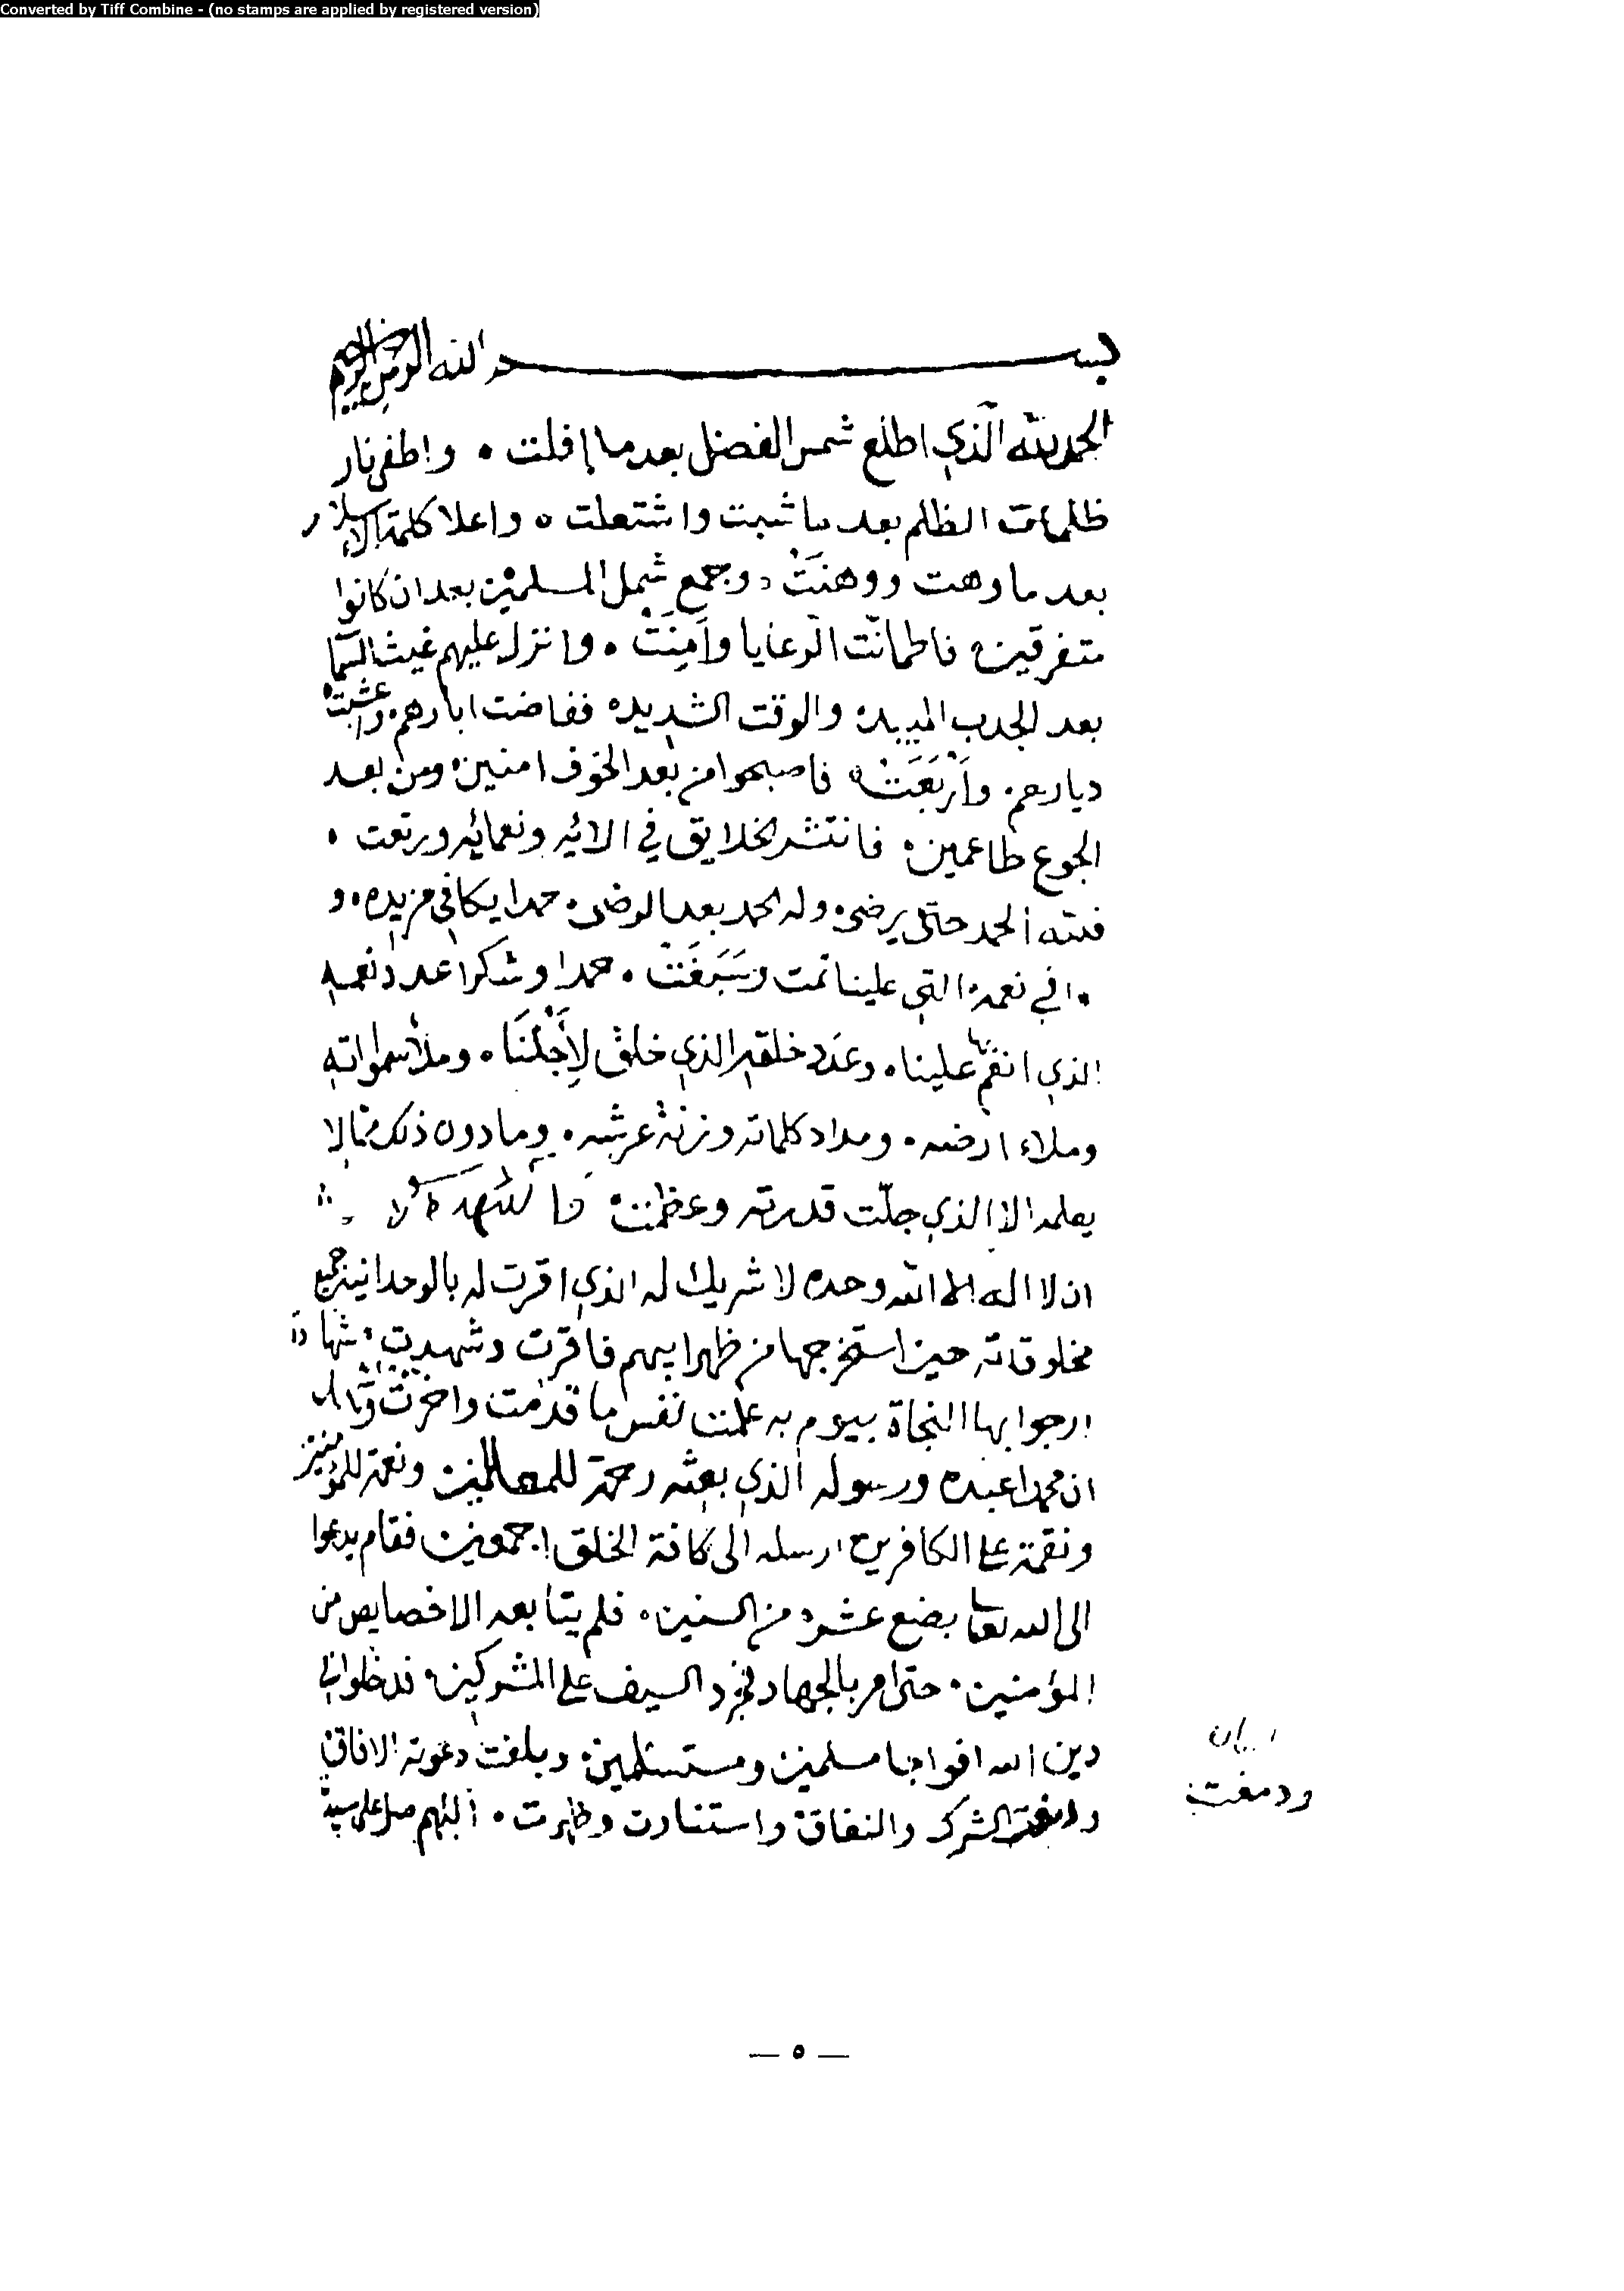 Converted by Tiff Combine - (no stamps are applied by registered version)
بسم الله الرحمن الرحيم
الحمد لله الذي اطلع شمس الفضل بعد ما افلت ٠ واطفى نار
ظلمات الظلم بعد ما شبت واشتعلت ٠ واعلا كلمة الاسلام
بعد ما وهت ووهنَتْ ٠ وجمع شمل المسلمين بعد ان كانوا
متفرقين ٠ فاطمانّت الرّعايا وأمِنَتْ ٠ وانزل عليهم غيث السما
بعد الجدب المبيد ٠ والوقت الشديد ٠ ففاضت ابارهم ٠ واعشبت
ديارهم ٠ وأرْبَعَتْ ٠ فاصبحوا من بعد الخوف امنين ٠ ومن بعد
الجوع طاعمين ٠ فانتشر الخلايق في الائه ونعمائه ورتعت ٠
فلله الحمد حتى يرضى ٠ وله الحمد بعد الرضى ٠ حمدا يكافي مزيده ٠ و
افي نعمه التي علينا تمت وسَبَغَتْ ٠ حمدا وشكرا عدد نعمه
الذي انعم بها علينا ٠ وعدد خلقه الذي خلق لأجْلنَا ٠ وملأ سمواته
وملاء ارضه ٠ ومداد كلماته وزنة عرشه ٠ وما دون ذلك مما لا
يعلمه الا الذي جلّت قدرته وعظمت ٠
ان لا اله الا الله وحده لا شريك له الذي اقرت له بالوحدانية جميع
مخلوقاته حين استخرجها من ظهر ابيهم فاقرت وشهدت ٠ شهادة
ارجوا بها النجاة بيوم به علمت نفس ما قدمت واخرت
ان محمدا عبده ورسوله الذي بعثه رحمة للعالمين ونعمة للمؤمنين
ونقمة على الكافرين ارسله الى كافة الخلق اجمعين فقام يدعوا
الى الله تعالى بضع عشر من السنين ٠ فلم يتابعه الا خصايص من
المؤمنين ٠ حتى امر بالجهاد فجرد السيف على المشركين ٠ فدخلوا في
دين الله افواجا مسلمين ومستسلمين ٠ وبلغت دعوته الافاق
ودمغت الشرك والنفاق واستنارت وظهرت ٠ اللهم صل على سيدنا
ودمغت
— ٥ —